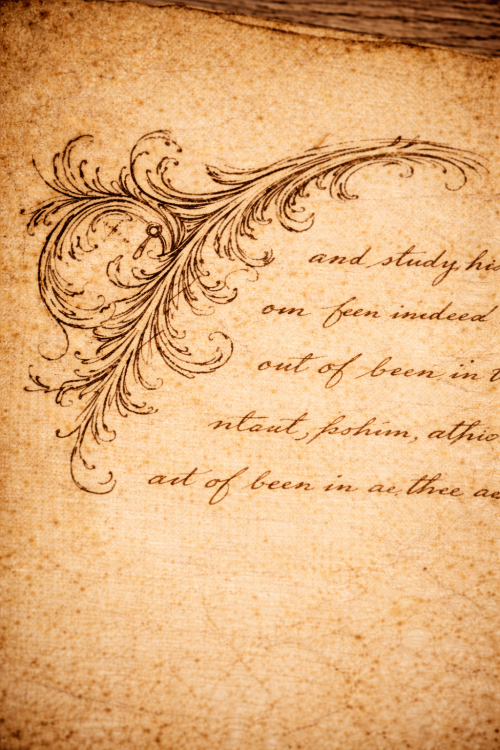 and study hi
om feen imdeed
out of been in t
ntaut, pohim, athio
art of been in ae. thee ae